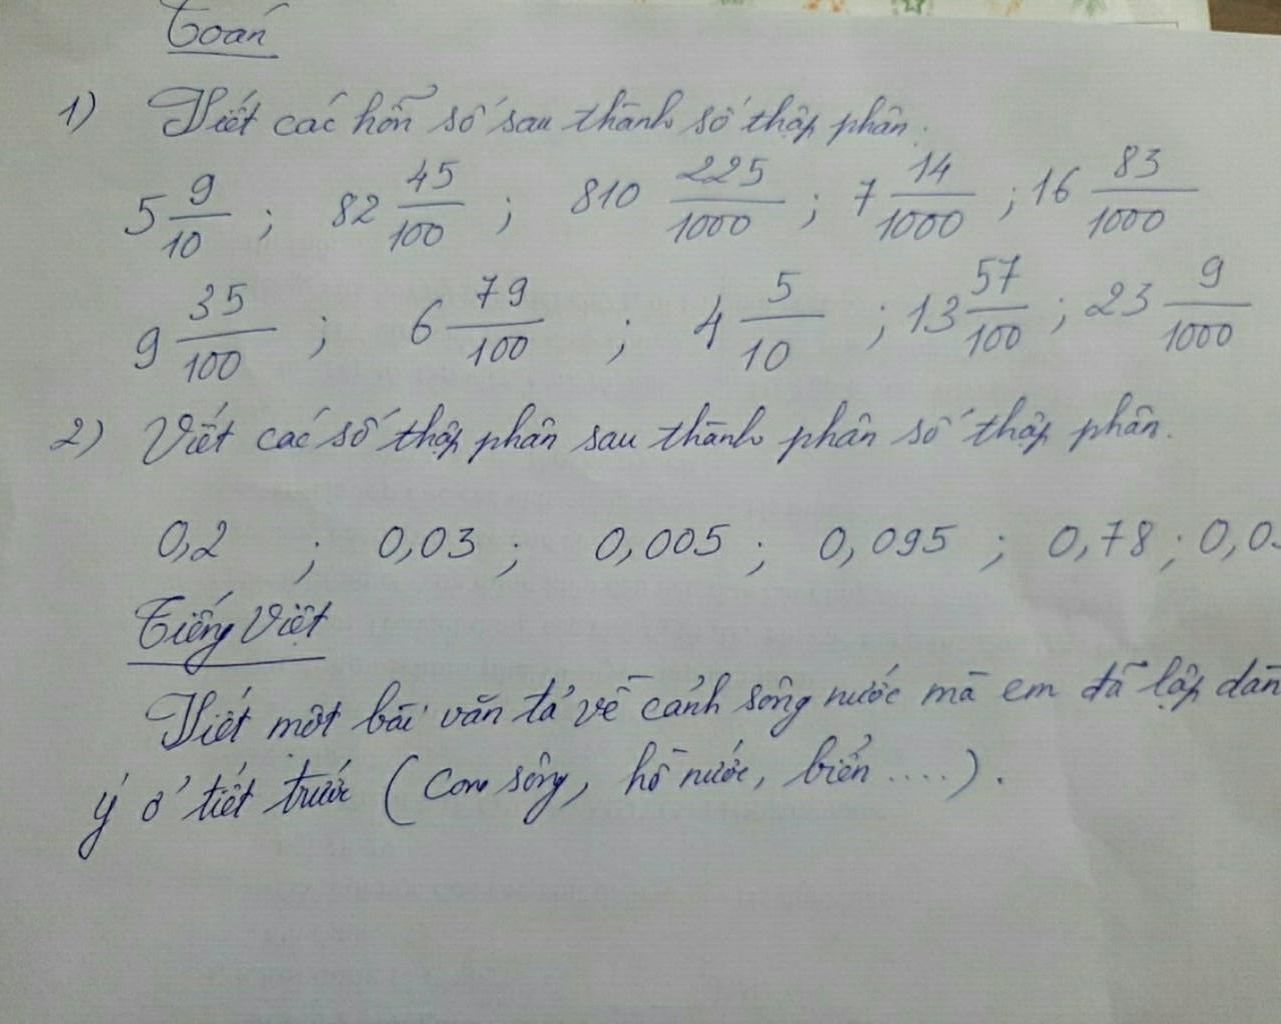 Toán
1) Viết các hỗn số sau thành số thập phân.
5 9/10 ; 82 45/100 ; 810 225/1000 ; 7 14/1000 ; 16 83/1000
9 35/100 ; 6 79/100 ; 4 5/10 ; 13 57/100 ; 23 9/1000
2) Viết các số thập phân sau thành phân số thập phân.
0,2 ; 0,03 ; 0,005 ; 0,095 ; 0,78 ;
Tiếng Việt
Viết một bài văn tả về cảnh sông nước mà em đã lập dàn
ý ở tiết trước ( con sông, hồ nước, biển ....).